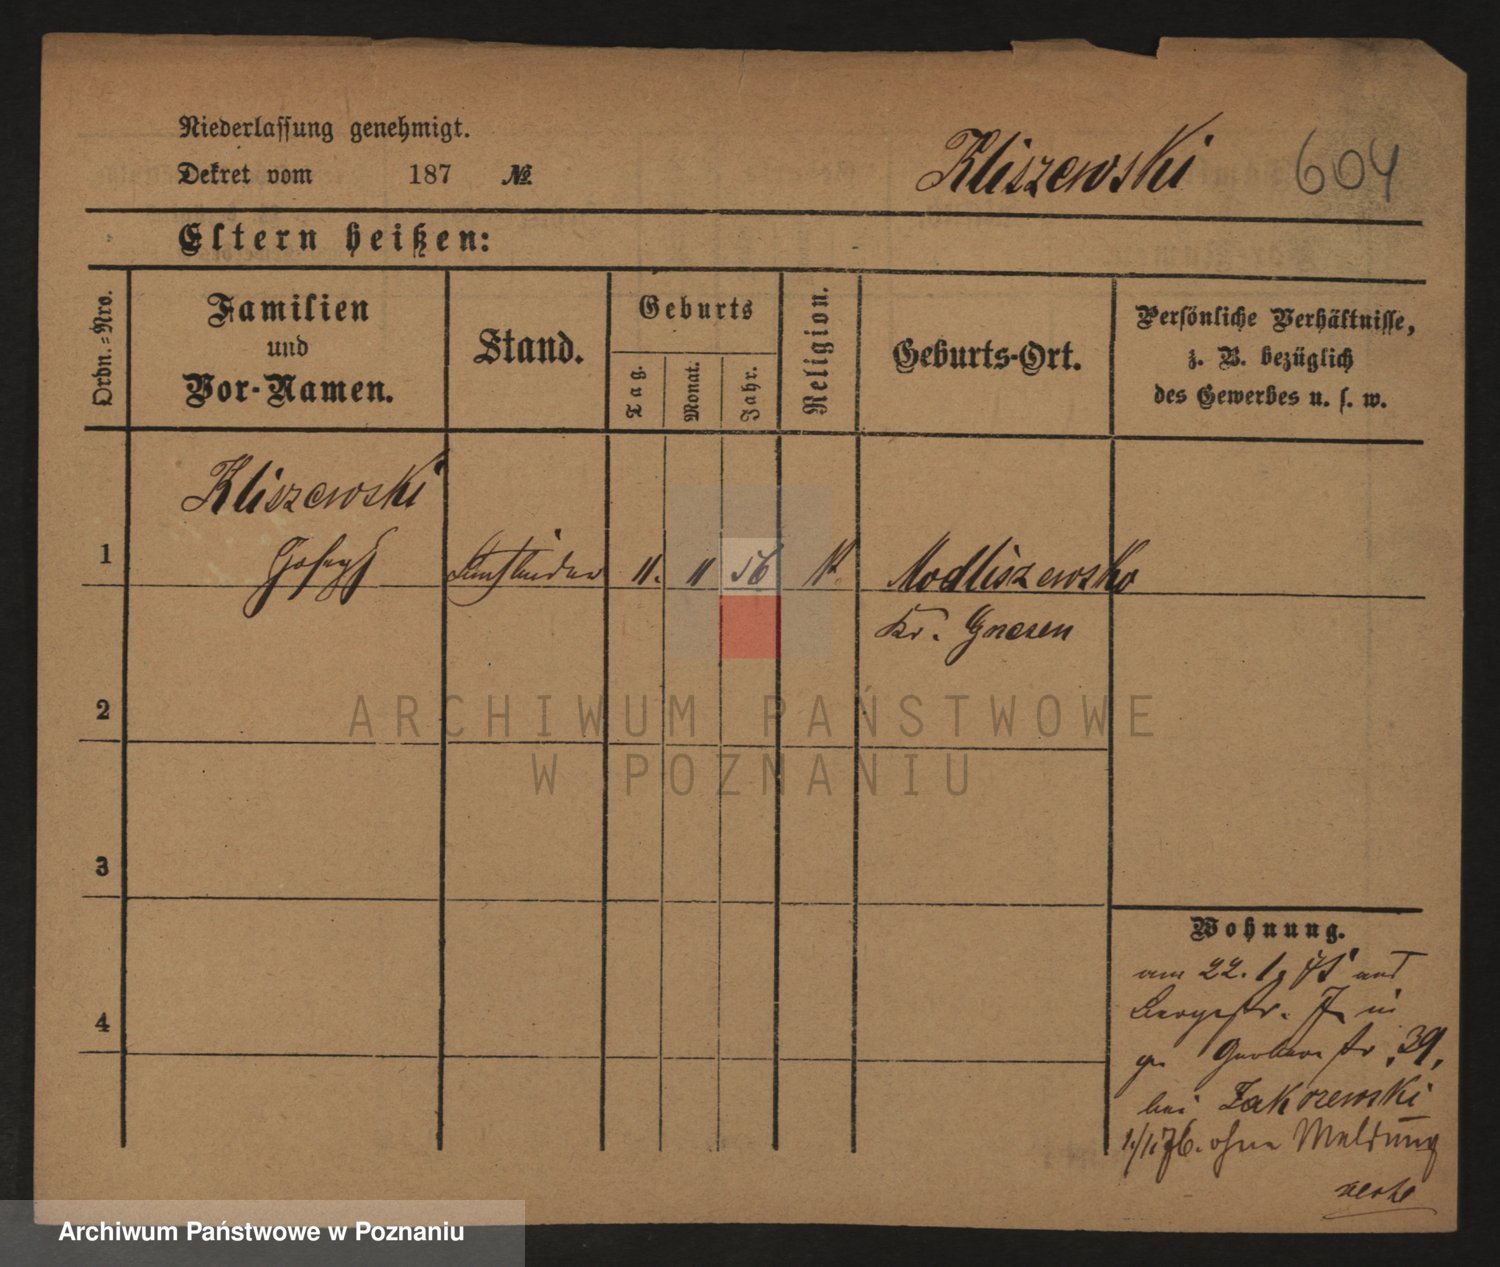 Niederlassung genehmigt.
Dekret vom 187 №
Kliszewski 604
Eltern heißen:
Ordn.=Nro.
Familien
und
Vor-Namen.
Stand.
Geburts
Tag.
Monat.
Jahr.
Religion.
Geburts-Ort.
Persönliche Verhältnisse,
z. B. bezüglich
des Gewerbes u. s. w.
Kliszewski
1 Joseph 11. 11 56 K. Modliszewsko
Kr. Gnesen
2
3
4
ARCHIWUM PAŃSTWOWE
W POZNANIU
Wohnung.
am 22. 1. 75 aus
Bergstr. 7 in
Gerberstr. 39,
bei Zakrzewski
1./1.76. ohne Meldung
Archiwum Państwowe w Poznaniu